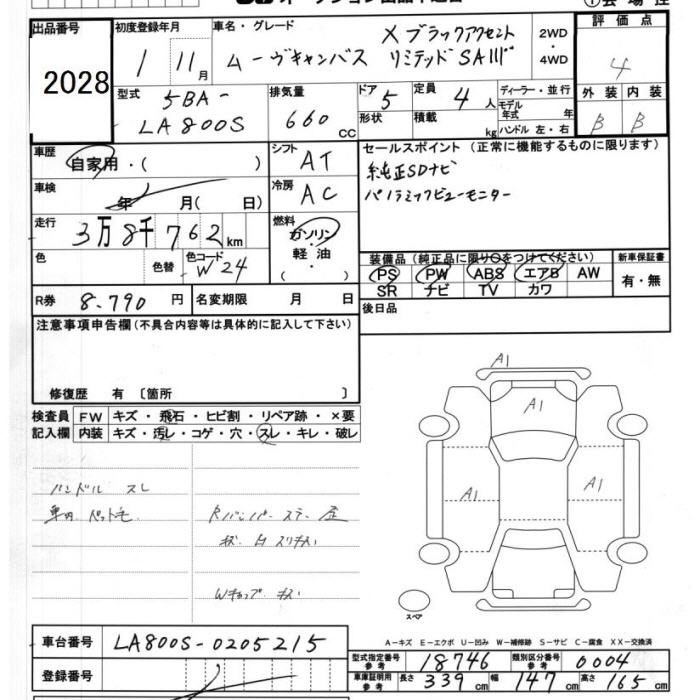 出品番号
2028
初度登録年月
1 11月
車名・グレード
ムーヴキャンバス
X ブラックアクセント
リミテッド SAⅢ
2WD
・
4WD
評価点
4
外装 内装
B B
型式
5BA-
LA800S
排気量
660 cc
ドア 5
形状
定員 4人
積載 kg
ディーラー・並行
モデル年式 年
ハンドル 左・右
車歴
自家用・( )
シフト AT
車検
年 月( 日)
冷房 AC
走行
3万8千762km
燃料
ガソリン
軽油
・( )
色
色替
色コード
W24
R券 8.790円
名変期限 月 日
セールスポイント (正常に機能するものに限ります)
純正SDナビ
パノラミックビューモニター
装備品 (純正品に限り○をつけてください)
PS PW ABS エアB AW
SR ナビ TV カワ
新車保証書
有・無
後日品
注意事項申告欄(不具合内容等は具体的に記入して下さい)
修復歴 有 〔箇所 〕
検査員
記入欄
FW キズ・飛石・ヒビ割・リペア跡・×要
内装 キズ・汚レ・コゲ・穴・スレ・キレ・破レ
ハンドル スレ
車内 ペット毛
Wキャップ キズ
A1
A1
A1
A1
スペア
車台番号 LA800S-0205215
登録番号
A-キズ E-エクボ U-凹み W-補修跡 S-サビ C-腐食 XX-交換済
型式指定番号 参考 18746
類別区分番号 参考 0004
車庫証明用 参考 長さ 339cm 幅 147cm 高さ 165cm